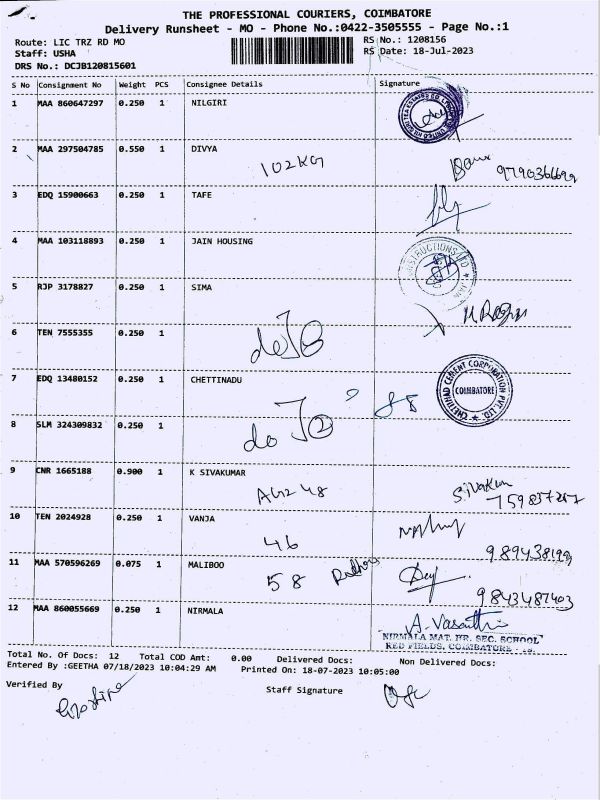 THE PROFESSIONAL COURIERS, COIMBATORE
Delivery Runsheet - MO - Phone No.:0422-3505555 - Page No.:1
Route: LIC TRZ RD MO RS No.: 1208156
Staff: USHA RS Date: 18-Jul-2023
DRS No.: DCJB120815601
S No Consignment No Weight PCS Consignee Details Signature
1 MAA 860647297 0.250 1 NILGIRI
2 MAA 297504785 0.550 1 DIVYA
102KG 9790366699
3 EDQ 15900663 0.250 1 TAFE
4 MAA 103118893 0.250 1 JAIN HOUSING
5 RJP 3178827 0.250 1 SIMA
6 TEN 7555355 0.250 1
do
7 EDQ 13480152 0.250 1 CHETTINADU
CHETTINAD CEMENT CORPORATION PVT. LTD. COIMBATORE
8 SLM 324309832 0.250 1
do
9 CNR 1665188 0.900 1 K SIVAKUMAR
48 Sivakum
10 TEN 2024928 0.250 1 VANJA
46
11 MAA 570596269 0.075 1 MALIBOO
58 9843487403
12 MAA 860055669 0.250 1 NIRMALA
A. Vasanthi
NIRMALA MAT. HR. SEC. SCHOOL
RED FIELDS, COIMBATORE - 18.
Total No. Of Docs: 12 Total COD Amt: 0.00 Delivered Docs: Non Delivered Docs:
Entered By :GEETHA 07/18/2023 10:04:29 AM Printed On: 18-07-2023 10:05:00
Verified By Staff Signature